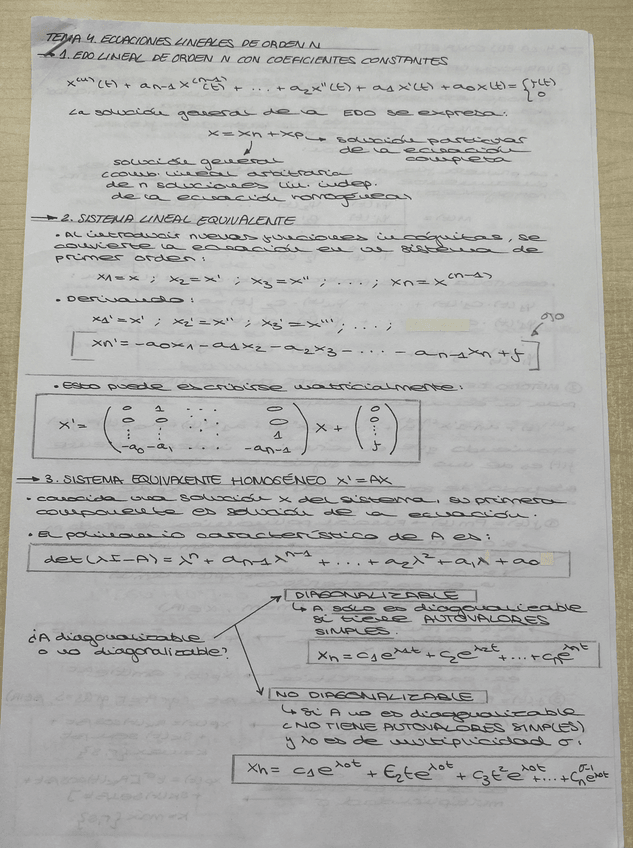 TEMA 4. ECUACIONES LINEALES DE ORDEN N
→ 1. EDO LINEAL DE ORDEN N CON COEFICIENTES CONSTANTES
x⁽ⁿ⁾(t) + an-1 x⁽ⁿ⁻¹⁾(t) + ... + a2 x''(t) + a1 x'(t) + a0 x(t) = { f(t)
0
La solución general de la EDO se expresa:
x = xh + xp → solución particular
de la ecuación
completa
solución general
(comb. lineal arbitraria
de n soluciones lin. indep.
de la ecuación homogénea)
→ 2. SISTEMA LINEAL EQUIVALENTE
· Al introducir nuevas funciones incógnitas, se
convierte la ecuación en un sistema de
primer orden:
x1 = x ; x2 = x' ; x3 = x'' ; ... ; xn = x⁽ⁿ⁻¹⁾
· Derivando:
x1' = x' ; x2' = x'' ; x3' = x''' ; ... ;
xn' = -a0x1 - a1x2 - a2x3 - ... - an-1xn + f
· Esto puede escribirse matricialmente:
X' = ( 0 1 ... 0 ) X + ( 0 )
0 0 ... 0 0
⋮ ⋮ ... 1 ⋮
-a0 -a1 ... -an-1 f
→ 3. SISTEMA EQUIVALENTE HOMOGÉNEO X' = AX
· Conocida una solución X del sistema, su primera
componente es solución de la ecuación.
· El polinomio característico de A es:
det(λI-A) = λⁿ + an-1λⁿ⁻¹ + ... + a2λ² + a1λ + a0
DIAGONALIZABLE
↳ A sólo es diagonalizable
si tiene AUTOVALORES
SIMPLES.
¿A diagonalizable
o no diagonalizable?
xh = c1e^λ1t + c2e^λ2t + ... + cne^λnt
NO DIAGONALIZABLE
↳ Si A no es diagonalizable
(NO TIENE AUTOVALORES SIMPLES)
y λ0 es de multiplicidad σ:
xh = c1e^λ0t + c2te^λ0t + c3t²e^λ0t + ... + cn^σ-1 e^λ0t